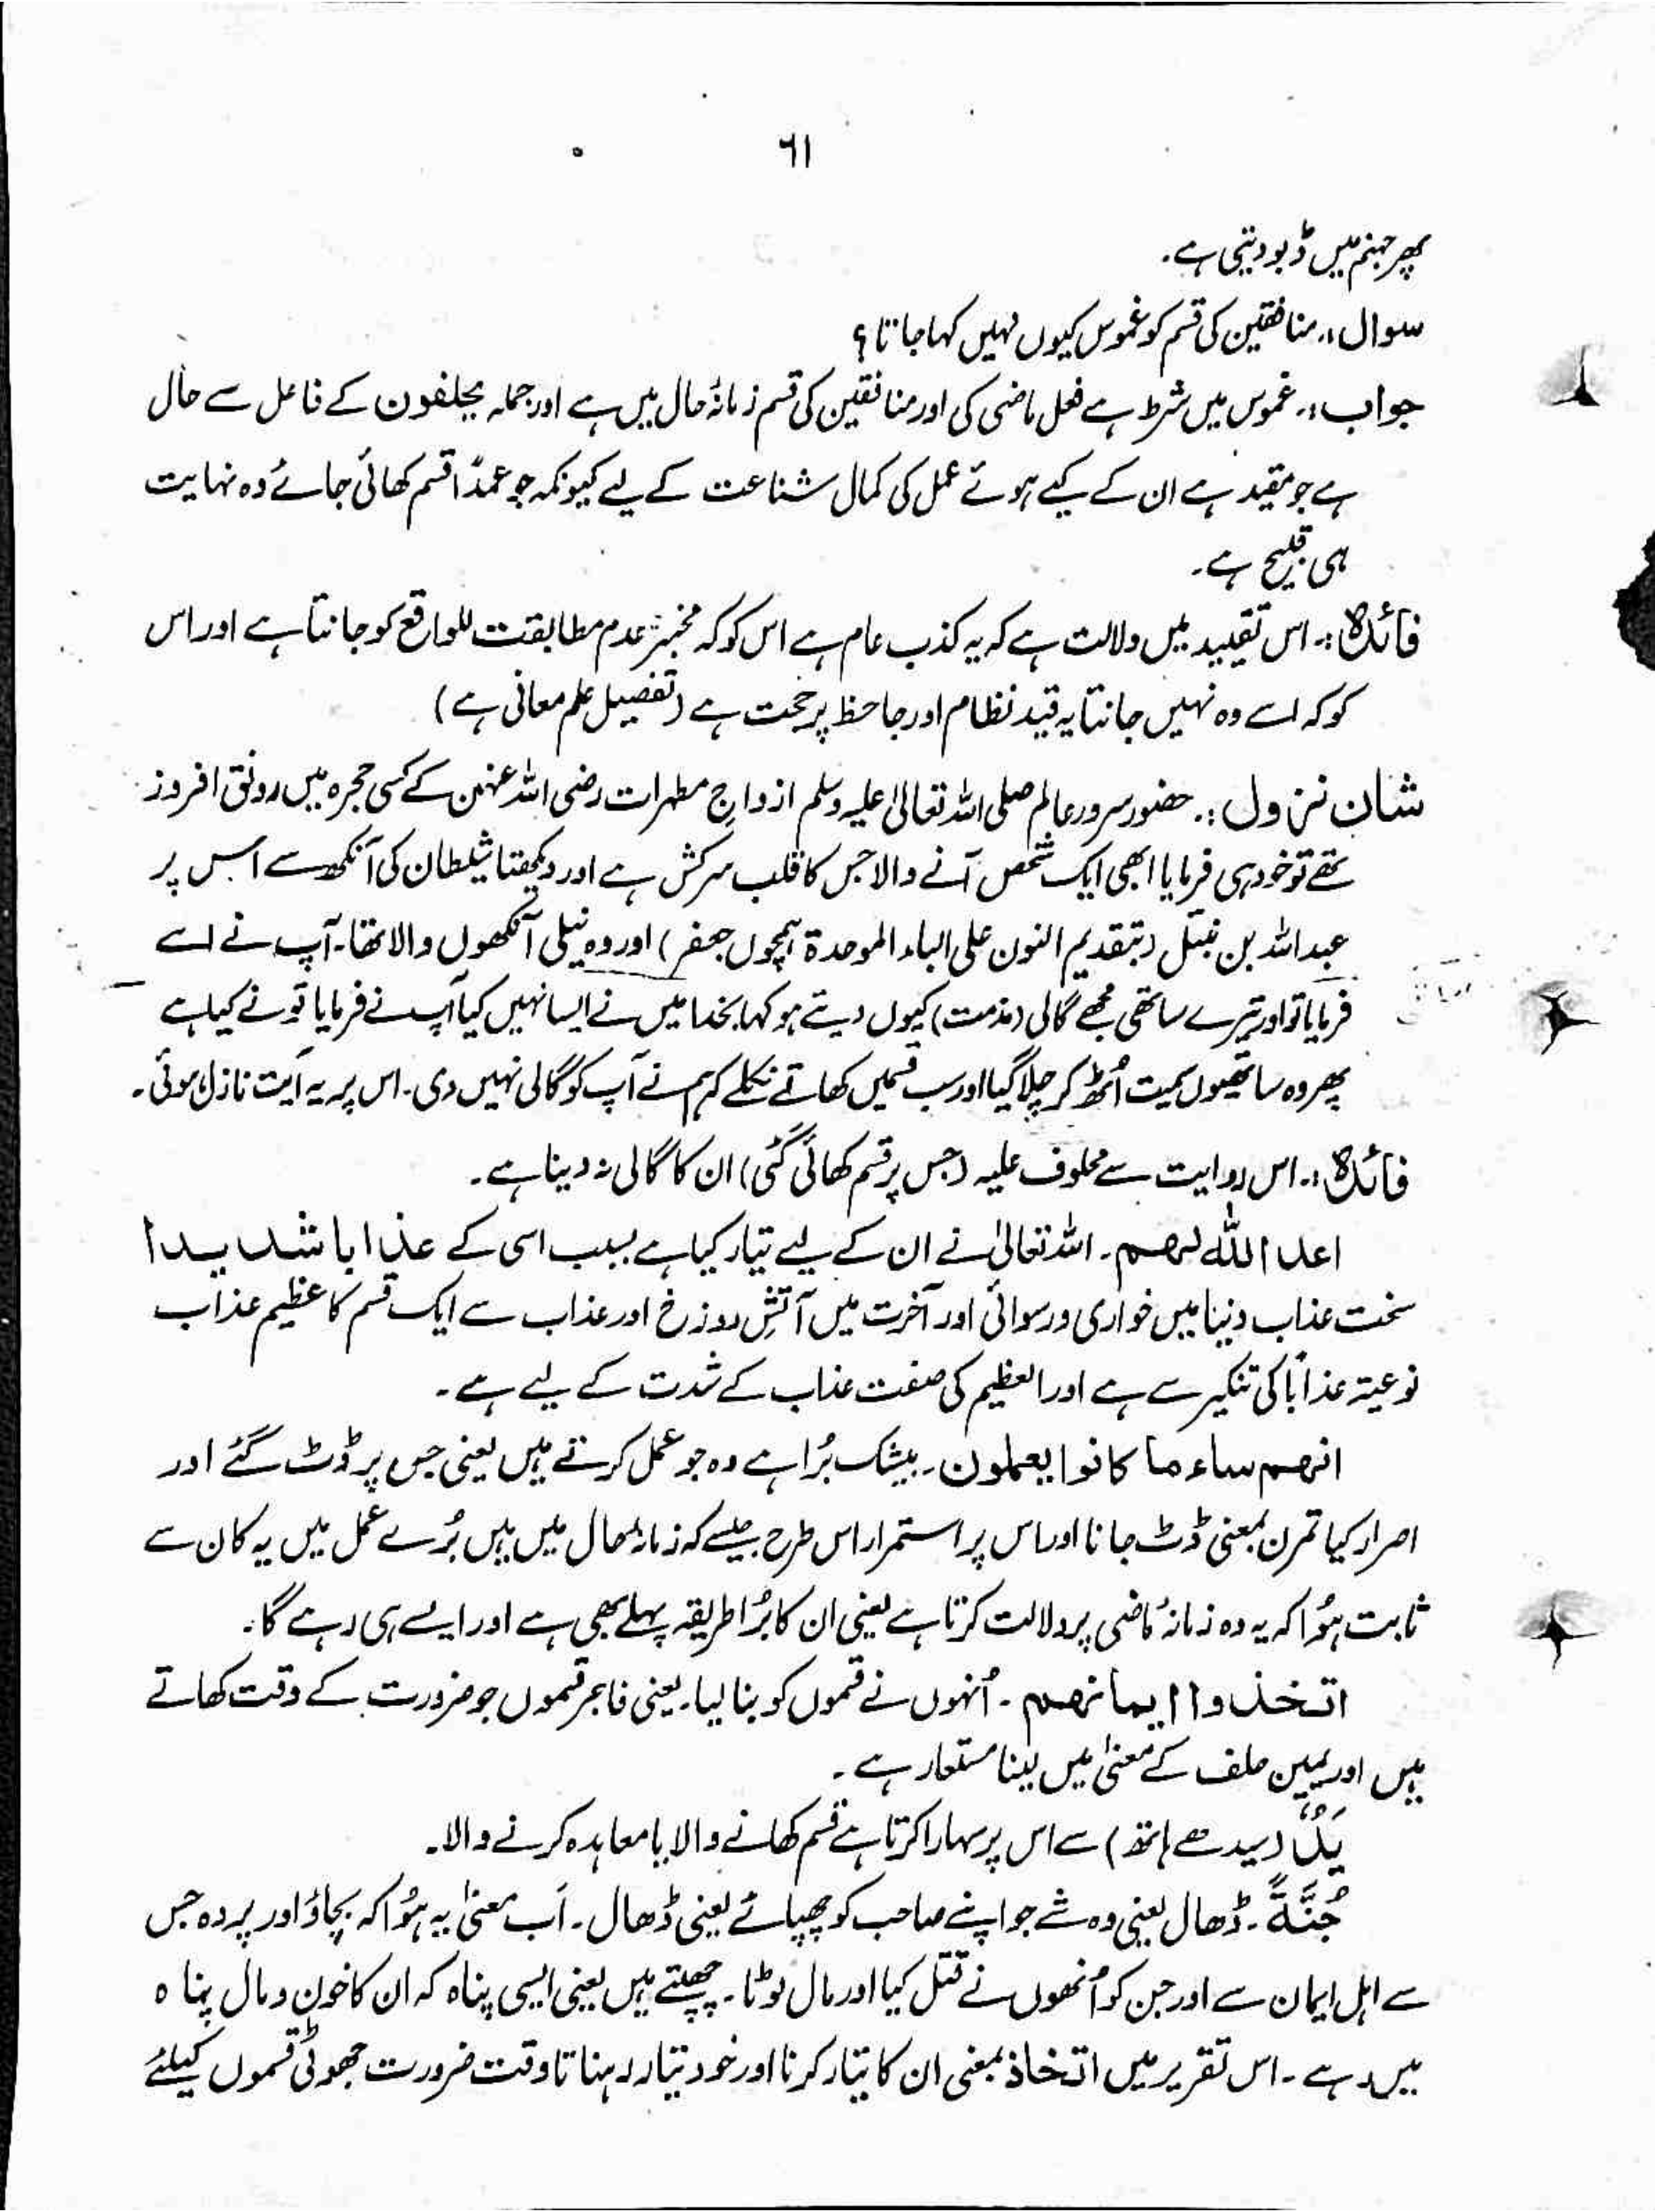 ٦١
پھر جہنم میں ڈبو دیتی ہے۔
سوال :۔ منافقین کی قسم کو غموس کیوں نہیں کہا جاتا؟
جواب :۔ غموس میں شرط ہے فعل ماضی کی اور منافقین کی قسم زمانۂ حال میں ہے اور جملہ یحلفون کے فاعل سے حال
ہے جو مقید ہے ان کے کیے ہوئے عمل کی کمال شناعت کے لیے کیونکہ جو عمداً قسم کھائی جائے وہ نہایت
ہی قبیح ہے۔
فائدہ :۔ اس تقیید میں دلالت ہے کہ یہ کذب عام ہے اس کو کہ مخبر عدم مطابقت للواقع کو جانتا ہے اور اس
کو کہ اسے وہ نہیں جانتا یہ قید نظام اور جاحظ پر حجت ہے (تفصیل علم معانی ہے)
شان نزول :۔ حضور سرور عالم صلی اللہ تعالیٰ علیہ وسلم ازواج مطہرات رضی اللہ عنہن کے کسی حجرہ میں رونق افروز
تھے تو خود ہی فرمایا ابھی ایک شخص آنے والا جس کا قلب سرکش ہے اور دیکھتا شیطان کی آنکھ سے اس پر
عبداللہ بن نبتل (بتقدیم النون علی الباء الموحدۃ ہمچوں جعفر) اور وہ نیلی آنکھوں والا تھا۔ آپ نے اسے
فرمایا تو اور تیرے ساتھی مجھے گالی (مذمت) کیوں دیتے ہو کہا بخدا میں نے ایسا نہیں کیا آپ نے فرمایا تو نے کیا ہے
پھر وہ ساتھیوں سمیت اُٹھ کر چلا گیا اور سب قسمیں کھاتے نکلے کہ ہم نے آپ کو گالی نہیں دی۔ اس پر یہ آیت نازل ہوئی۔
فائدہ :۔ اس روایت سے محلوف علیہ (جس پر قسم کھائی گئی) ان کا گالی نہ دینا ہے۔
اعد اللہ لہم۔ اللہ تعالیٰ نے ان کے لیے تیار کیا ہے بسبب اسی کے عذابا شدیدا
سخت عذاب دنیا میں خواری و رسوائی اور آخرت میں آتشِ دوزخ اور عذاب سے ایک قسم کا عظیم عذاب
نوعیۃ عذاباً کی تنکیر سے ہے اور العظیم کی صفت عذاب کے شدت کے لیے ہے۔
انہم ساء ما کانوا یعملون۔ بیشک بُرا ہے وہ جو عمل کرتے ہیں یعنی جس پر ڈٹ گئے اور
اصرار کیا تمرن بمعنی ڈٹ جانا اور اس پر استمرار اس طرح جیسے کہ زمانۂ حال میں ہیں بُرے عمل میں یہ کان سے
ثابت ہوا کہ یہ وہ زمانۂ ماضی پر دلالت کرتا ہے یعنی ان کا بُرا طریقہ پہلے بھی ہے اور ایسے ہی رہے گا۔
اتخذوا ایمانہم۔ اُنہوں نے قسموں کو بنا لیا۔ یعنی فاجر قسموں جو ضرورت کے وقت کھاتے
ہیں اور یمین حلف کے معنیٰ میں لینا مستعار ہے۔
یَدٌ (سیدھے ہاتھ) سے اس پر سہارا کرتا ہے قسم کھانے والا یا معاہدہ کرنے والا۔
جُنَّۃً۔ ڈھال یعنی وہ شے جو اپنے صاحب کو چھپائے یعنی ڈھال۔ اَب معنیٰ یہ ہُوا کہ بچاؤ اور پردہ جس
سے اہل ایمان سے اور جن کو اُنھوں نے قتل کیا اور مال لوٹا۔ چھپتے ہیں یعنی ایسی پناہ کہ ان کا خون و مال پناہ
میں رہے۔ اس تقریر میں اتخاذ بمعنی ان کا تیار کرنا اور خود تیار رہنا تا وقت ضرورت جھوٹی قسموں کیلئے